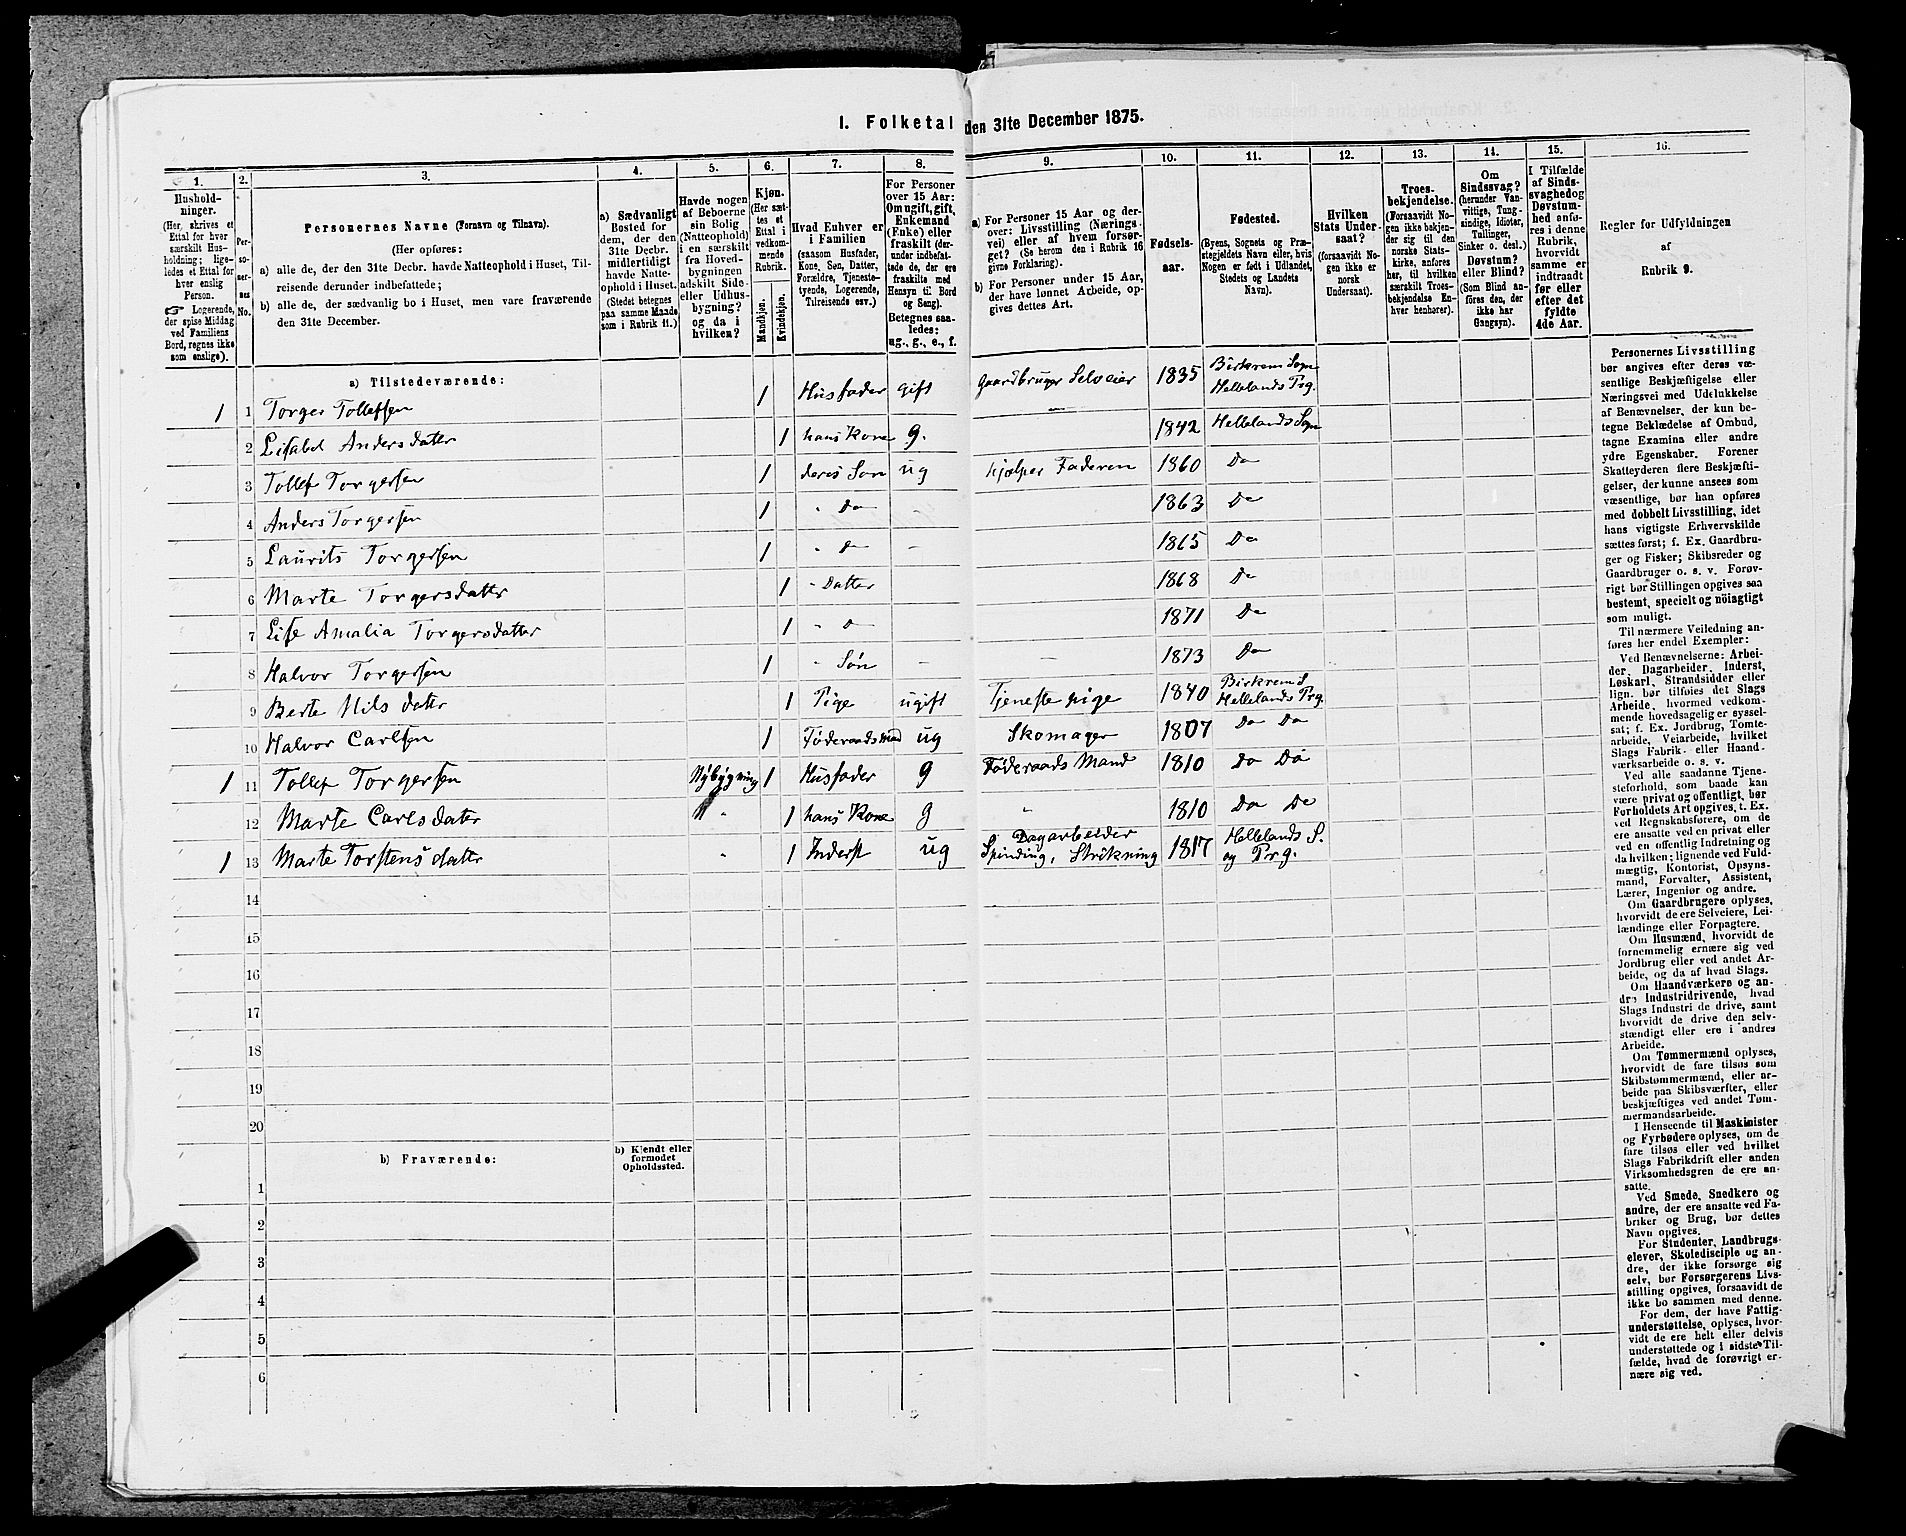 I. Folketal den 31te December 1875.
1.
Hushold-
ninger.
(Her, skrives et
Ettal for hver
særskilt Hus-
holdning; lige-
ledes et Ettal for
hver enslig
Person.
☞ Logerende,
der spise Middag
ved Familiens
Bord, regnes ikke
som enslige).
2.
Per-
so-
ner-
nes
No.
3.
Personernes Navne (Fornavn og Tilnavn).
(Her opføres:
a) alle de, der den 31te Decbr. havde Natteophold i Huset, Til-
reisende derunder indbefattede;
b) alle de, der sædvanlig bo i Huset, men vare fraværende
den 31te December.
4.
a) Sædvanligt
Bosted for
dem, der den
31te Decbr.
midlertidigt
havde Natte-
ophold i Huset.
(Stedet betegnes
paa samme Maade
som i Rubrik 11.)
5.
Havde nogen
af Beboerne
sin Bolig
(Natteophold)
i en særskilt
fra Hoved-
bygningen
adskilt Side-
eller Udhus-
bygning?
og da i
hvilken?
6.
Kjøn.
(Her sæt-
tes et
Ettal i
vedkom-
mende
Rubrik.
Mandkjøn.
Kvindekjøn.
7.
Hvad Enhver er
i Familien
(saasom Husfader,
Kone, Søn, Datter,
Forældre, Tjeneste-
tyende, Logerende,
Tilreisende osv.)
8.
For Personer
over 15 Aar:
Om ugift, gift,
Enkemand
(Enke) eller
fraskilt (der-
under indbefat-
tede de, der ere
fraskilte med
Hensyn til Bord
og Seng).
Betegnes saa-
ledes:
ug., g., e., f.
9.
a) For Personer 15 Aar og der-
over: Livsstilling (Nærings-
vei) eller af hvem forsør-
get? (Se herom den i Rubrik 16
givne Forklaring).
b) For Personer under 15 Aar,
der have lønnet Arbeide, op-
gives dettes Art.
10.
Fødsels-
aar.
11.
Fødested.
(Byens, Sognets og Præ-
stegjeldets Navn eller, hvis
Nogen er født i Udlandet,
Stedets og Landets
Navn).
12.
Hvilken
Stats Under-
saat?
(forsaavidt No-
gen ikke er
norsk
Undersaat).
13.
Troes-
bekjendelse.
(Forsaavidt No-
gen ikke bekjen-
der sig til den
norske Stats-
kirke, anføres
her, til hvilken
særskilt Troes-
bekjendelse En-
hver henhører).
14.
Om
Sindssvag?
(herunder Van-
vittige, Tung-
sindige, Idioter,
Tullinger,
Sinker o. desl.)
Døvstum?
eller Blind?
(Som Blind an-
føres den, der
ikke har
Gangsyn).
15.
I Tilfælde
af Sinds-
svaghed og
Døvstum-
hed anfø-
res i denne
Rubrik,
hvorvidt
samme er
indtraadt
før eller
efter det
fyldte
4de Aar.
16.
Regler for Udfyldningen
af
Rubrik 9.
a) Tilstedeværende:
1 1 Torger Tollefsen 1 Husfader gift Gaardbruger Selveier 1835 Birkrem Sogn
Hellelands Prg.
2 Lisabel Andersdatter 1 hans Kone g. " 1842 Hellelands Sogn
3 Tollef Torgersen 1 deres Søn ug hjælper Faderen 1860 Do
4 Anders Torgersen 1 " Do - 1863 Do
5 Laurits Torgersen 1 " d - 1865 Do
6 Marte Torgersdatter 1 " Datter 1868 Do
7 Lise Amalia Torgersdatter 1 " d 1871 Do
8 Halvor Torgersen 1 " Søn - - 1873 Do
9 Berte Nilsdatter 1 Pige ugift Tjenestepige 1840 Birkrem S
Hellelands Prg.
10 Halvor Carlsen 1 Føderaadsmand ug Skomager 1807 Do Do
1 11 Tollef Torgersen Nybygning 1 Husfader g Føderaads Mand 1810 Do Do
12 Marte Carlsdatter " " 1 hans Kone g " 1810 Do Do
1 13 Marte Torstensdatter " 1 Inderst ug Dagarbeider
Spinding, Strikning 1817 Hellelands S.
og Prg.
14
15
16
17
18
19
20
b) Fraværende:
b) Kjendt eller
formodet
Opholdssted.
1
2
3
4
5
6
Personernes Livsstilling
bør angives efter deres væ-
sentlige Beskjæftigelse eller
Næringsvei med Udelukkelse
af Benævnelser, der kun be-
tegne Beklædelse af Ombud,
tagne Examina eller andre
ydre Egenskaber. Forener
Skatteyderen flere Beskjæfti-
gelser, der kunne ansees som
væsentlige, bør han opføres
med dobbelt Livsstilling, idet
hans vigtigste Erhvervskilde
sættes først; f. Ex. Gaardbru-
ger og Fisker; Skibsreder og
Gaardbruger o. s. v. Forøv-
rigt bør Stillingen opgives saa
bestemt, specielt og nöiagtigt
som muligt.
Til nærmere Veiledning an-
føres her endel Exempler:
Ved Benævnelserne: Arbei-
der, Dagarbeider, Inderst,
Løskarl, Strandsidder eller
lign. bør tilføies det Slags
Arbeide, hvormed vedkom-
mende hovedsagelig er syssel-
sat; f. Ex. Jordbrug, Tomte-
arbeide, Veiarbeide, hvilket
Slags Fabrik- eller Haand-
værksarbeide o. s. v.
Ved alle saadanne Tjene-
steforhold, som baade kan
være privat og offentligt, bør
Forholdets Art opgives, t. Ex.
ved Regnskabsførere, om de
ere ansatte ved en privat eller
ved en offentlig Indretning og
da hvilken; lignende ved Fuld-
mægtig, Kontorist, Opsyns-
mand, Forvalter, Assistent,
Lærer, Ingeniør og andre.
Om Gaardbrugere oplyses,
hvorvidt de ere Selveiere, Lei-
lændinge eller Forpagtere.
Om Husmænd, hvorvidt de
fornemmelig ernære sig ved
Jordbrug eller ved andet Ar-
beide, og da af hvad Slags.
Om Haandværkere og an-
dre Industridrivende, hvad
Slags Industri de drive, samt
hvorvidt de drive den selv-
stændigt eller ere i andres
Arbeide.
Om Tømmermænd oplyses,
hvorvidt de fare tilsøs som
Skibstømmermænd, eller ar-
beide paa Skibsværfter, eller
beskjæftiges ved andet Tøm-
mermandsarbeide.
I Henseende til Maskinister
og Fyrbødere oplyses, om de
fare tilsøs eller ved hvilket
Slags Fabrikdrift eller anden
Virksomhedsgren de ere an-
satte.
Ved Smede, Snedkere og
andre, der ere ansatte ved Fa-
briker og Brug, bør dettes
Navn opgives.
For Studenter, Landbrugs-
elever, Skoledisciple og an-
dre, der ikke forsørge sig
selv, bør Forsørgerens Livs-
stilling opgives, forsaavidt de
ikke bo sammen med denne.
For dem, der have Fattig-
understøttelse, oplyses, hvor-
vidt de ere helt eller delvis
understøttede og i sidste Til-
fælde, hvad de forøvrigt er-
nære sig ved.